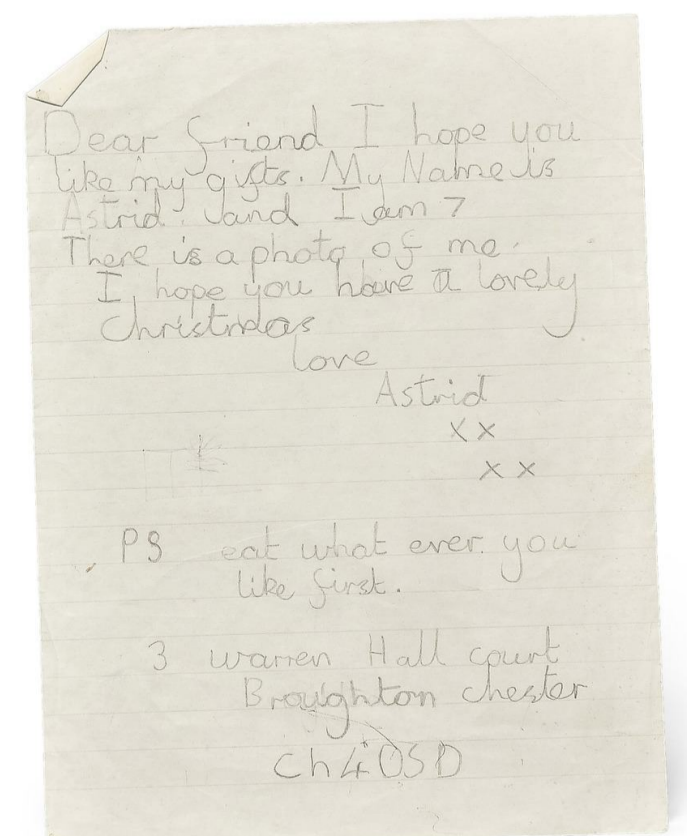 Dear friend I hope you
like my gifts. My Name is
Astrid. and I am 7
There is a photo of me.
I hope you have a lovely
Christmas
love
Astrid
x x
x x
PS eat what ever you
like first.
3 warren Hall court
Broughton chester
ch4 0SD